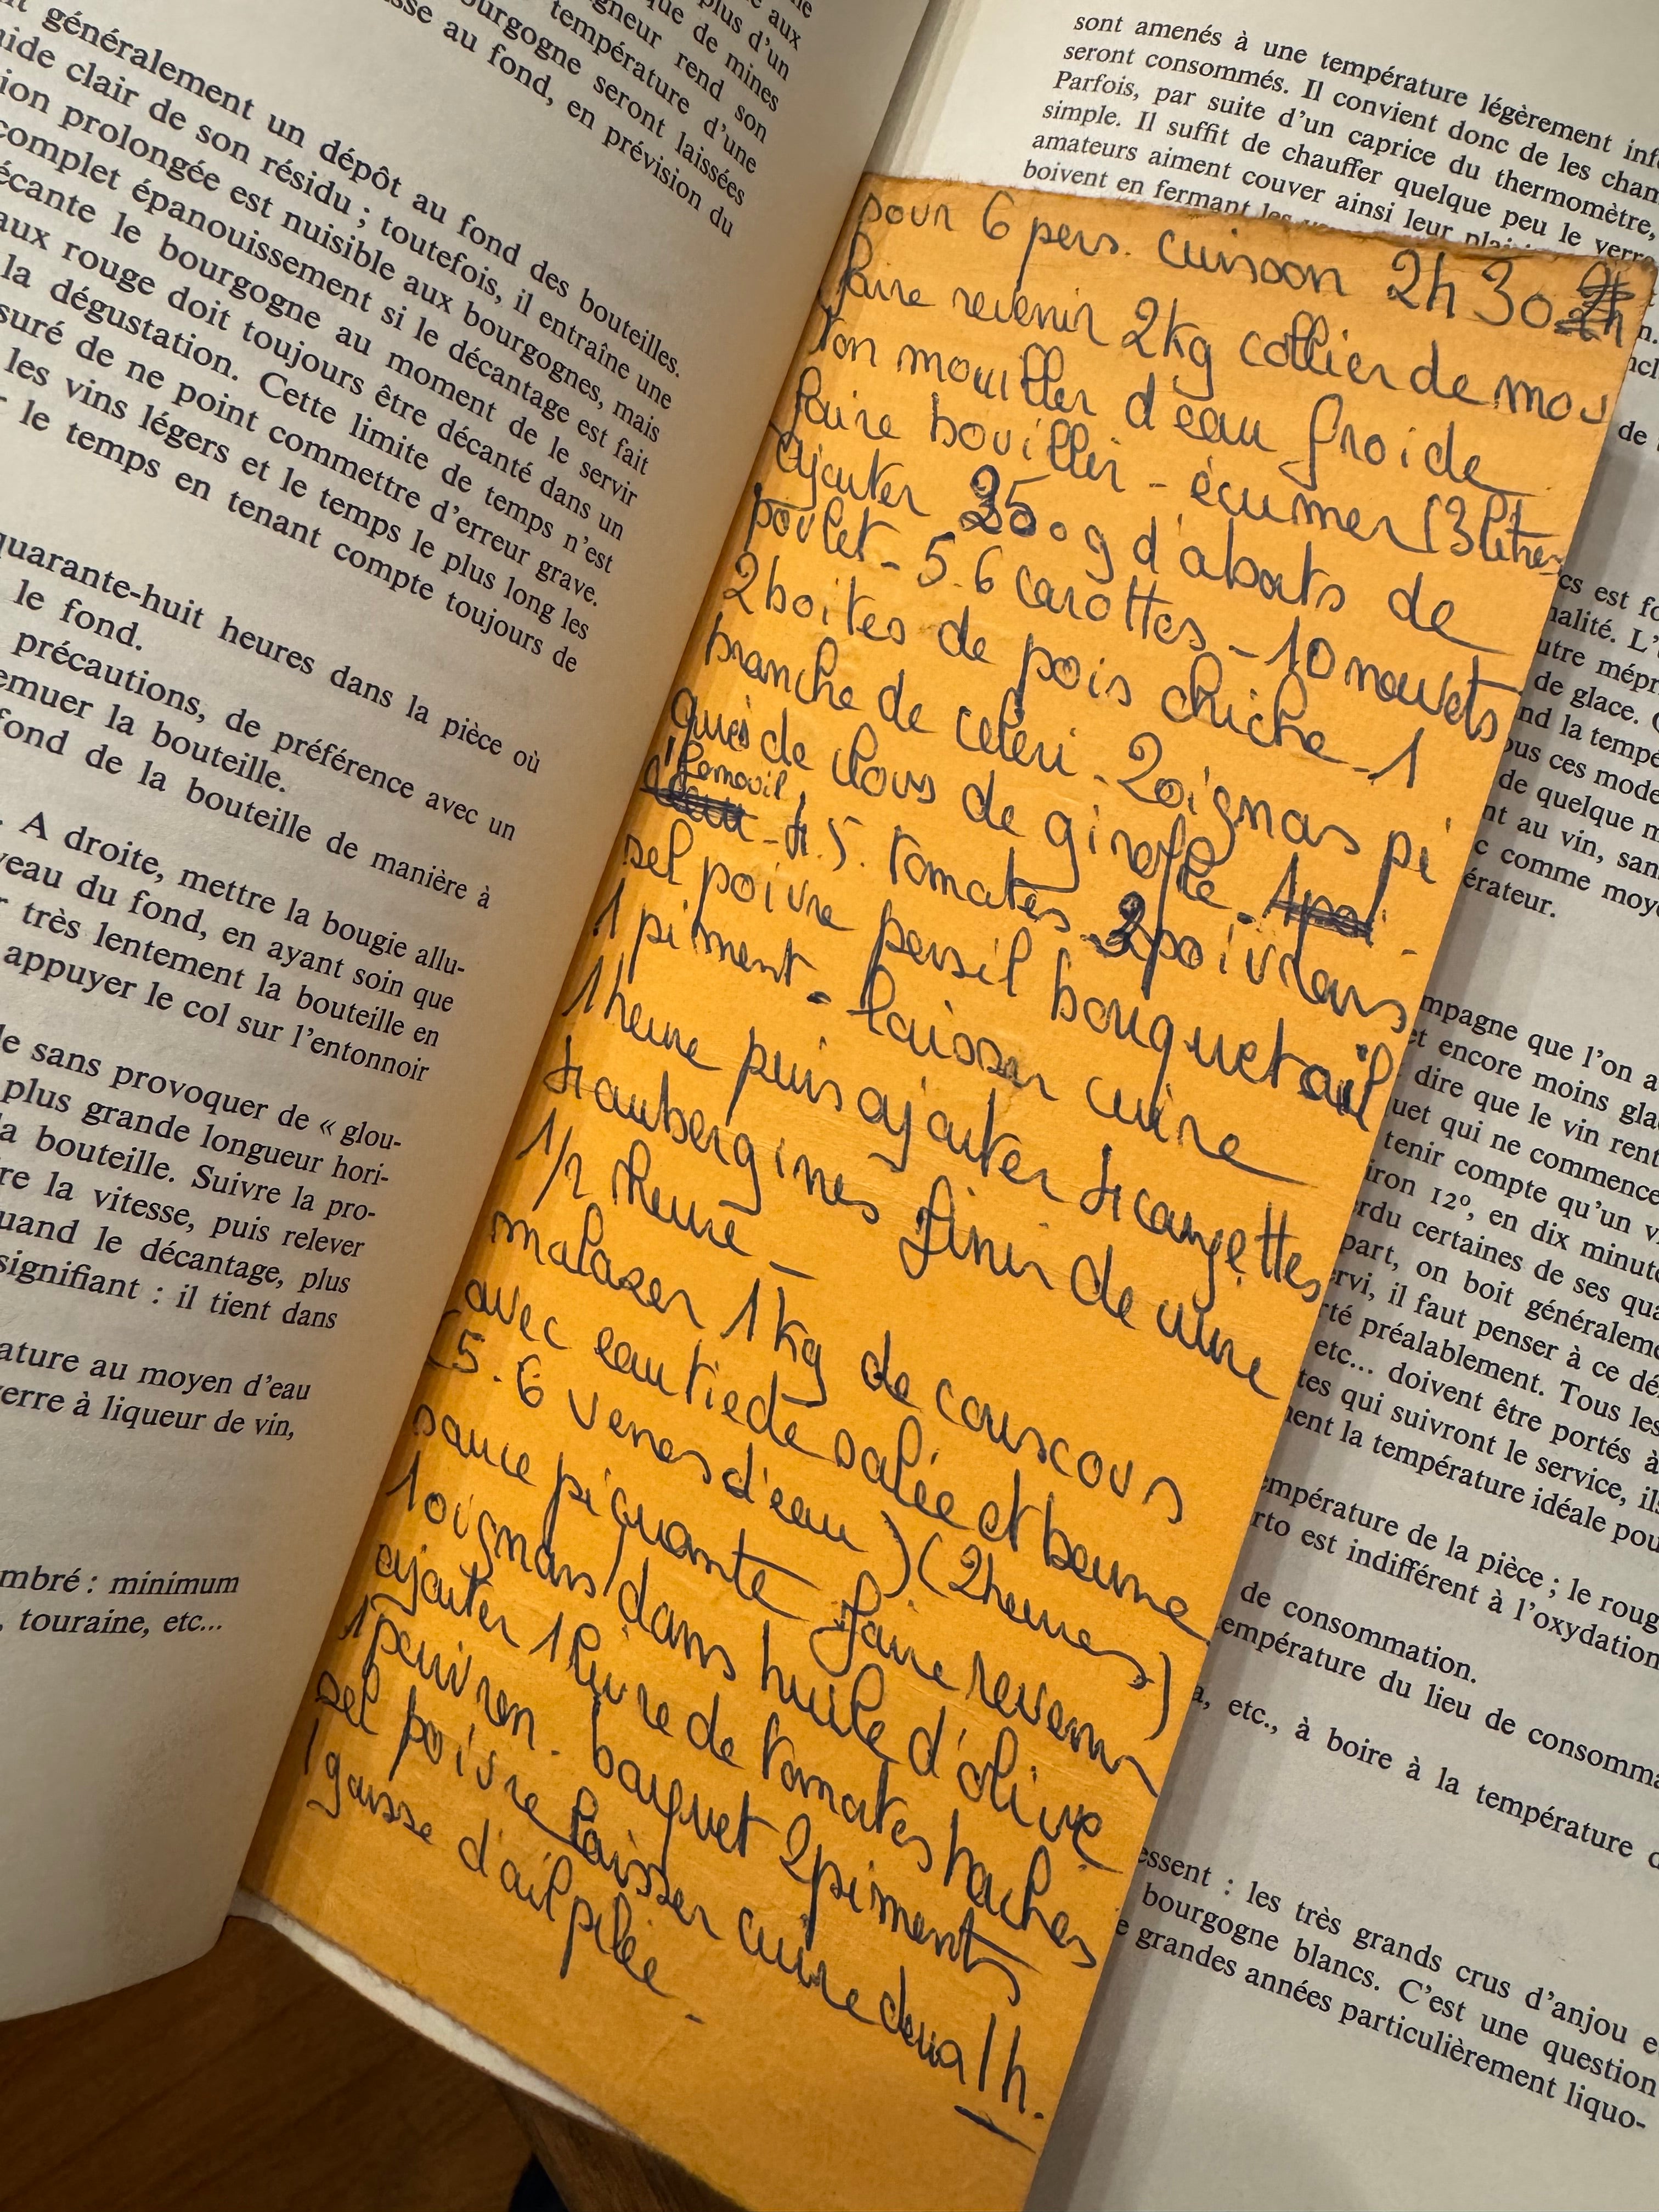 aux
plus d'un
que de mines
igneur rend son
température d'une
ourgogne seront laissées
sse au fond, en prévision du
généralement un dépôt au fond des bouteilles.
ide clair de son résidu ; toutefois, il entraîne une
ion prolongée est nuisible aux bourgognes, mais
complet épanouissement si le décantage est fait
écante le bourgogne au moment de le servir
aux rouge doit toujours être décanté dans un
la dégustation. Cette limite de temps n'est
suré de ne point commettre d'erreur grave.
les vins légers et le temps le plus long les
le temps en tenant compte toujours de
quarante-huit heures dans la pièce où
le fond.
précautions, de préférence avec un
emuer la bouteille.
fond de la bouteille de manière à
. A droite, mettre la bougie allu-
veau du fond, en ayant soin que
très lentement la bouteille en
appuyer le col sur l'entonnoir
le sans provoquer de « glou-
plus grande longueur hori-
la bouteille. Suivre la pro-
re la vitesse, puis relever
uand le décantage, plus
signifiant : il tient dans
ature au moyen d'eau
erre à liqueur de vin,
mbré : minimum
, touraine, etc...
pour 6 pers. cuisson 2h30
faire revenir 2kg collier de mou
ton mouiller d'eau froide
faire bouillir - écumer (3 litres
ajouter 350g d'abats de
poulet - 5.6 carottes - 10 navets
2 boites de pois chiche - 1
branche de céleri - 2 oignons pi
qués de clous de girofle -
1 fenouil
4.5. tomates 2 poivrons
sel poivre persil bouquet ail
1 piment - laisser cuire
1 heure puis ajouter 4 courgettes
4 aubergines finir de cuire
1/2 heure -
malaxer 1kg de couscous
avec eau tiede salée et beurre
(5.6 verres d'eau) (2 heures)
sauce piquante faire revenir
1 oignons dans huile d'olive
ajouter 1 livre de tomates hachés
1 poivron. bouquet 2 piments
sel poivre laisser cuire doux 1h.
1 gousse d'ail pilée -
sont amenés à une température légèrement inf
seront consommés. Il convient donc de les cham
Parfois, par suite d'un caprice du thermomètre,
simple. Il suffit de chauffer quelque peu le verre
amateurs aiment couver ainsi leur plaisi
boivent en fermant les
n.
ncl
de
cs est fo
nalité. L'
utre mépr
de glace.
nd la tempé
ous ces mode
de quelque m
nt au vin, san
c comme moye
érateur.
mpagne que l'on a
et encore moins gla
dire que le vin rent
uet qui ne commence
tenir compte qu'un v
iron 12º, en dix minut
rdu certaines de ses qua
part, on boit généraleme
rvi, il faut penser à ce dé
rté préalablement. Tous les
etc... doivent être portés à
tes qui suivront le service, ils
ment la température idéale pou
empérature de la pièce ; le roug
rto est indifférent à l'oxydation
de consommation.
empérature du lieu de consomma
a, etc., à boire à la température d
essent : les très grands crus d'anjou e
bourgogne blancs. C'est une question
e grandes années particulièrement liquo-